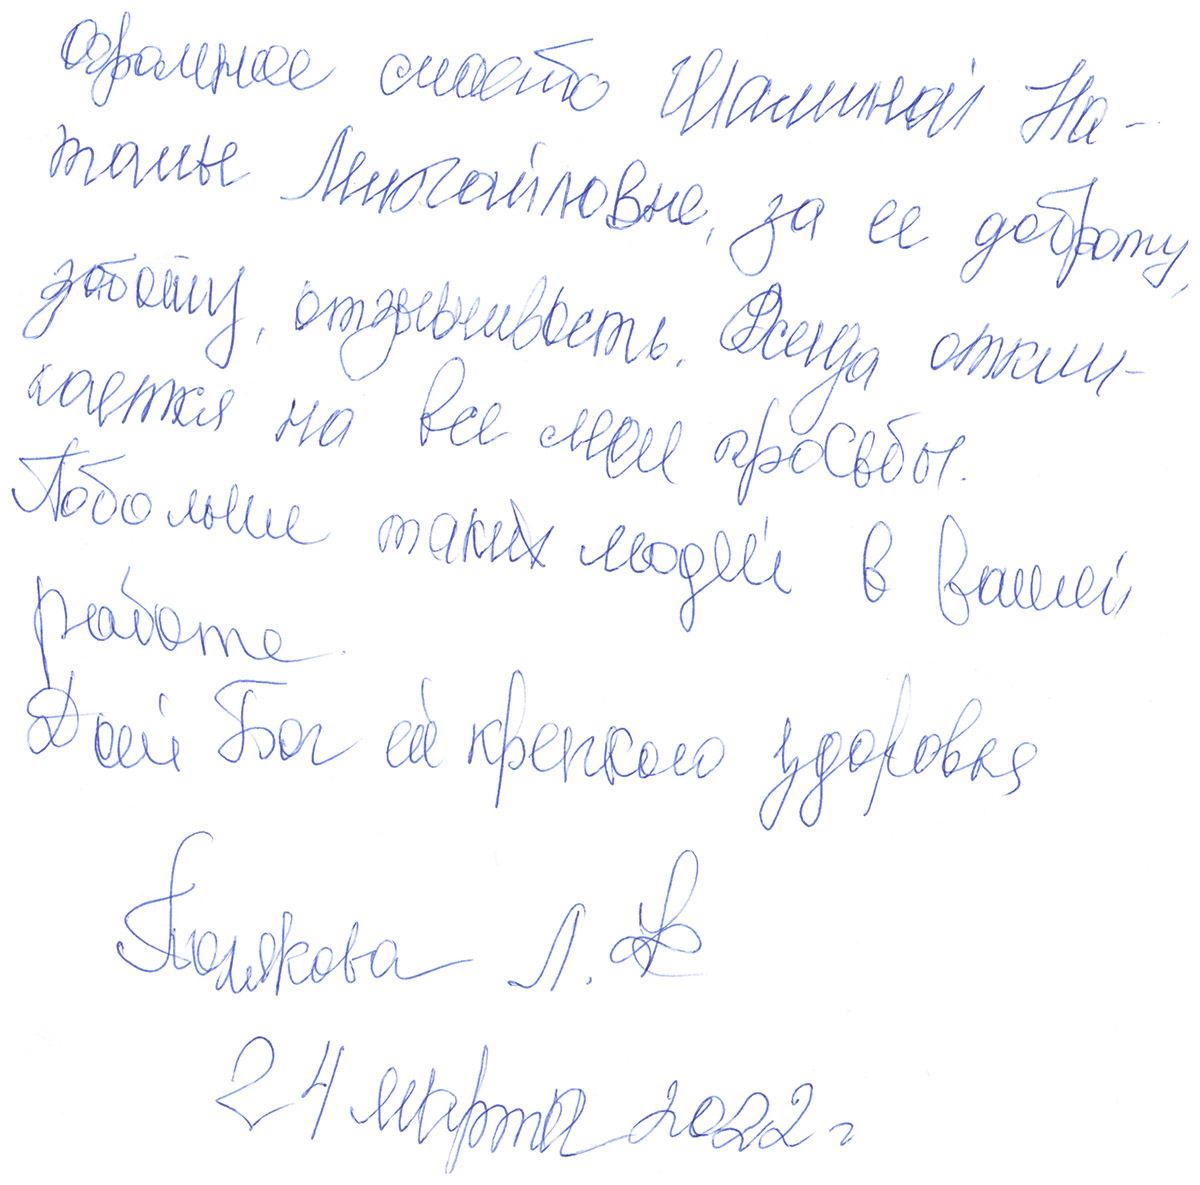 огромное спасибо Шалиной На-
талье Михайловне, за ее доброту,
заботу, отзывчивость. Всегда откли-
кается на все мои просьбы.
Побольше таких людей в вашей
работе.
Дай Бог ей крепкого здоровья
Полякова Л.
24 марта 2022 г